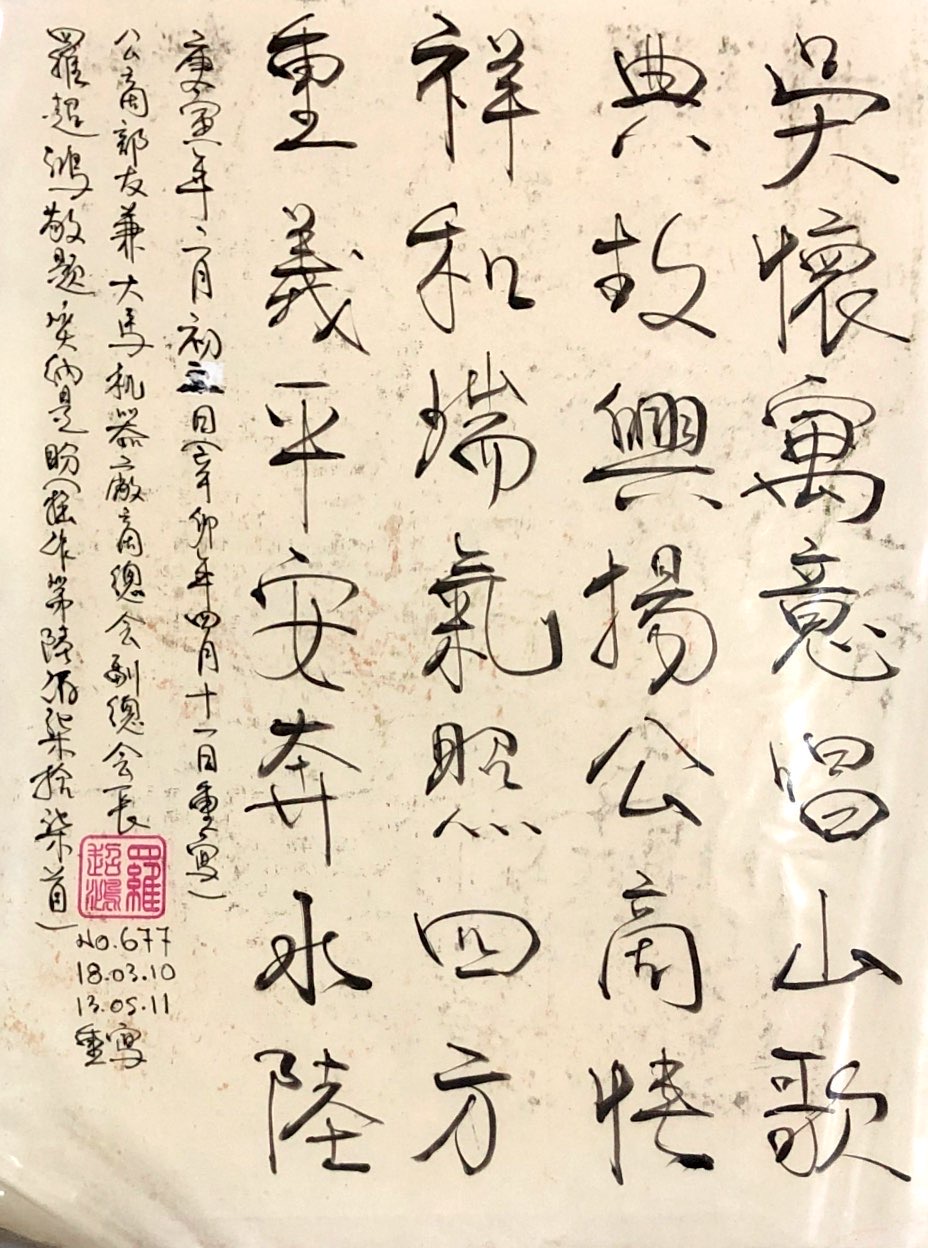 吳懷寓意唱山歌
典故興揚公商情
祥和瑞氣照四方
重義平安奔水陸
庚寅年二月初三日(辛卯年四月十一日重寫)
公商部友兼大马机器廠商總会副總会長
羅超鴻敬题 笑纳是盼(拙作第陸佰柒拾柒首)
羅超鴻
No.677
18.03.10
13.05.11
重寫